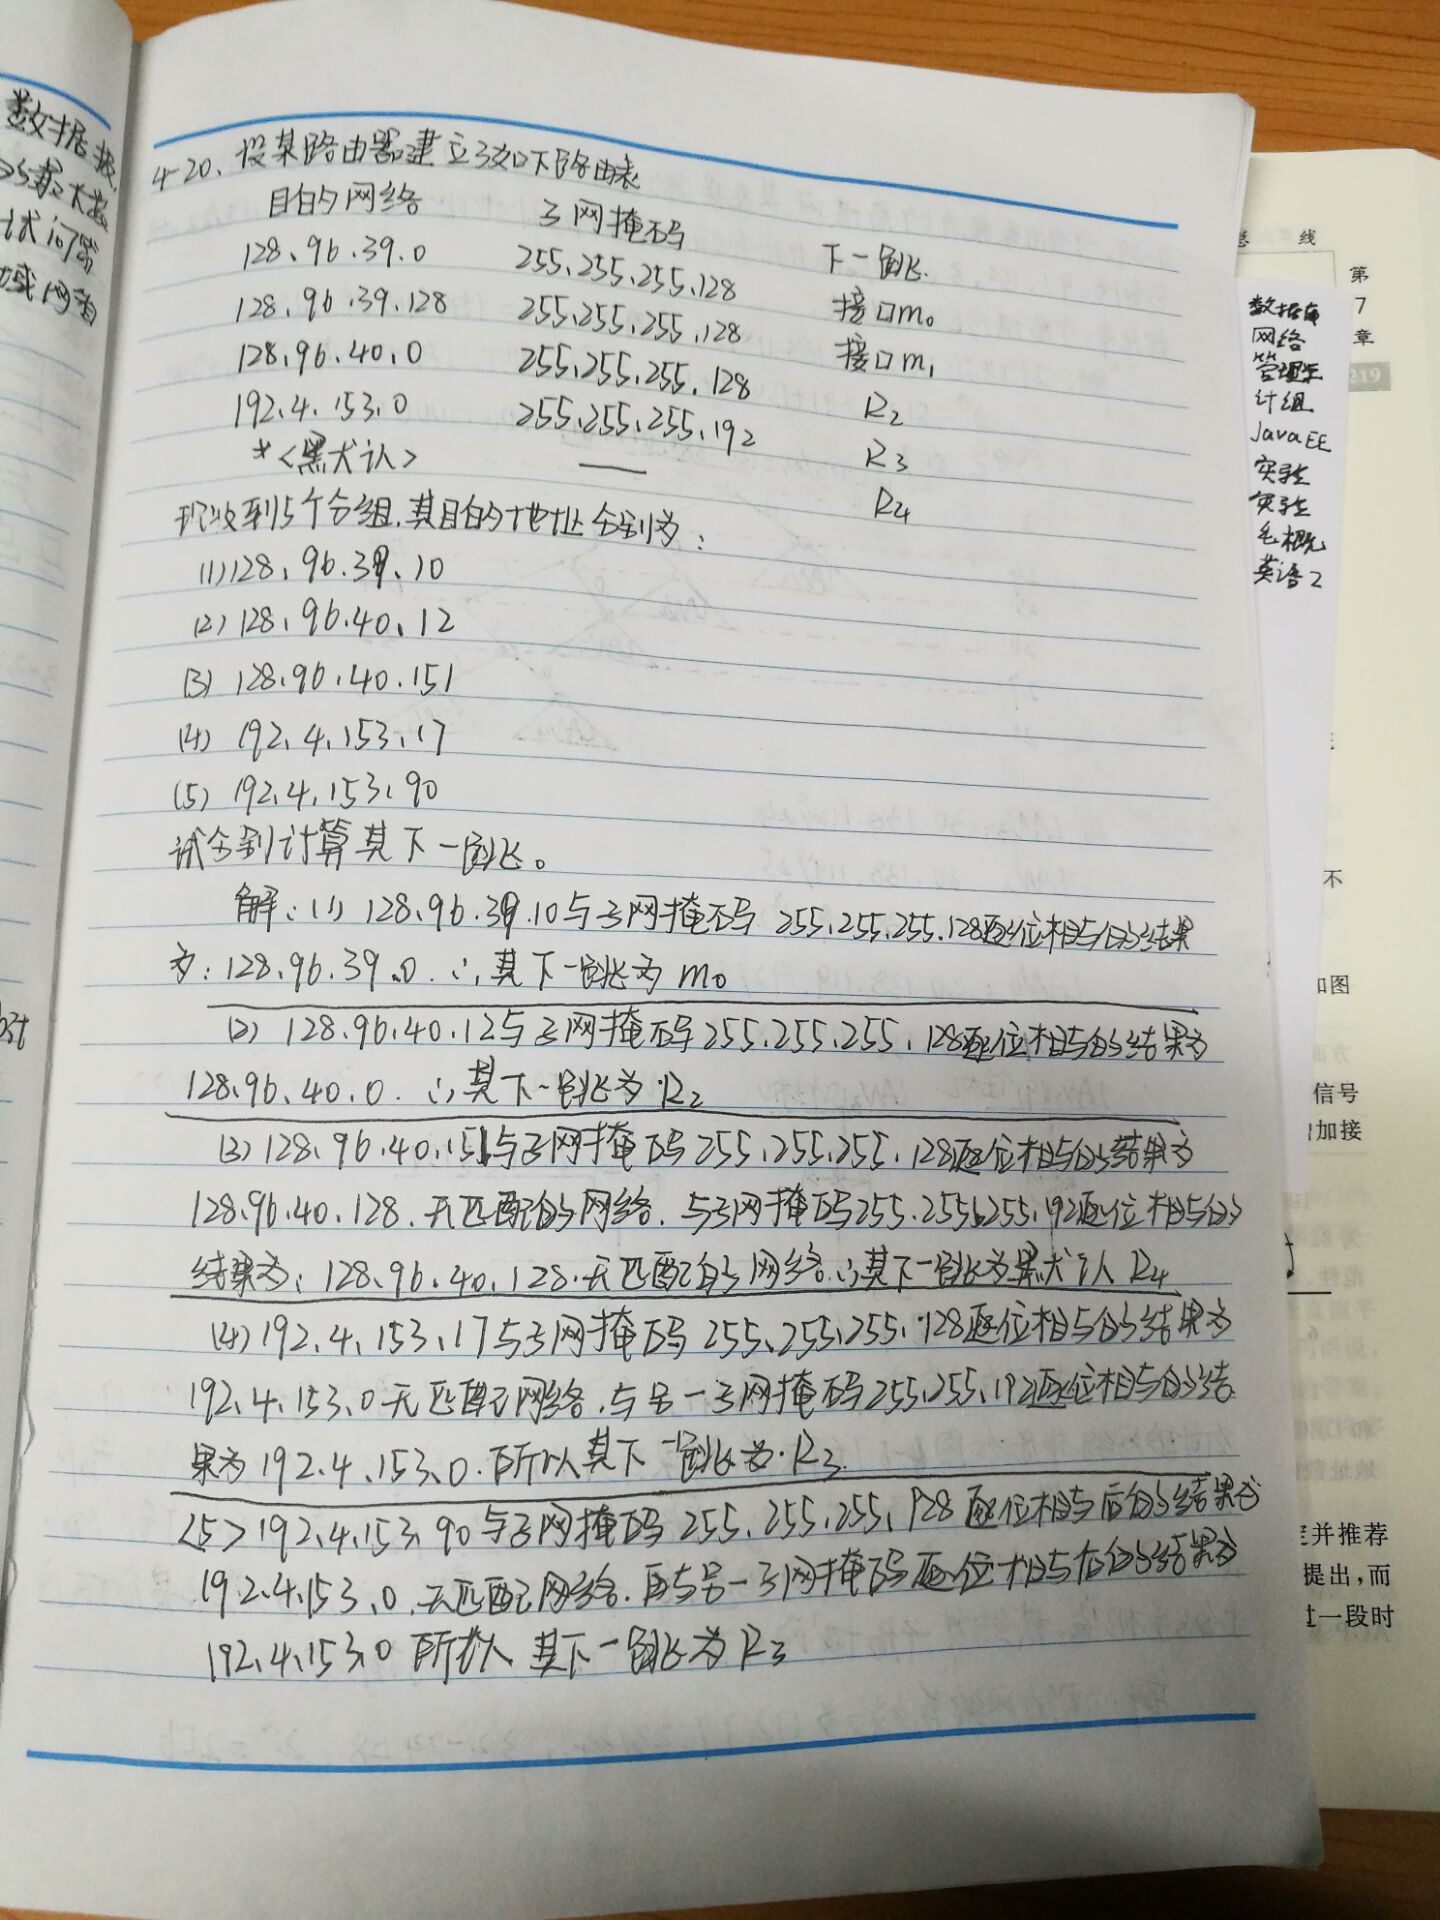 数据报
大数
试问需
域网省
4-20、设某路由器建立了如下路由表
目的网络 子网掩码 下一跳.
128.96.39.0 255.255.255.128 接口m₀
128.96.39.128 255.255.255.128 接口m₁
128.96.40.0 255.255.255.128 R₂
192.4.153.0 255.255.255.192 R₃
*<默认> — R₄
现收到5个分组,其目的地址分别为:
(1)128.96.39.10
(2)128.96.40.12
(3)128.96.40.151
(4)192.4.153.17
(5)192.4.153.90
试分别计算其下一跳。
解:(1)128.96.39.10与子网掩码 255.255.255.128逐位相与的结果
为:128.96.39.0.∴其下一跳为m₀
(2)128.96.40.12与子网掩码255.255.255.128逐位相与的结果为
128.96.40.0.∴其下一跳为R₂
(3)128.96.40.151与子网掩码255.255.255.128逐位相与的结果为
128.96.40.128.无匹配的网络.与子网掩码255.255.255.192逐位相与的
结果为:128.96.40.128.无匹配的网络.∴其下一跳为默认R₄
(4)192.4.153.17与子网掩码255.255.255.128逐位相与的结果为
192.4.153.0无匹配网络.与另一子网掩码255.255.192逐位相与的结
果为192.4.153.0.所以其下一跳为R₃.
<5>192.4.153.90与子网掩码255.255.255.128逐位相与后的结果为
192.4.153.0.无匹配网络.再与另一子网掩码逐位相与后的结果为
192.4.153.0 所以 其下一跳为R₃
数据库
网络
管理学
计组
JavaEE
实验
实验
毛概
英语2
总 线
第
7
章
219
不
如图
方面
信号
增加接
定并推荐
提出,而
过一段时